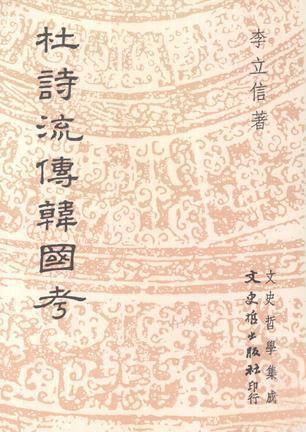 李立信著
杜詩流傳韓國考
文史哲學集成
文史哲出版社印行